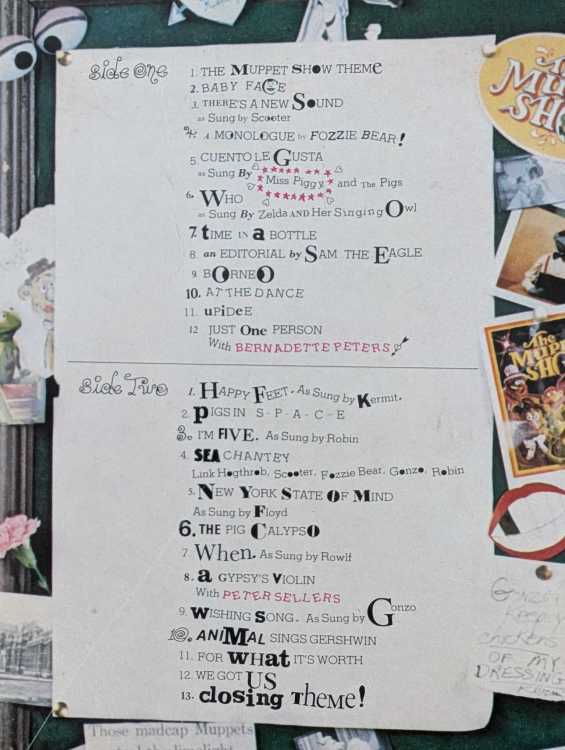 Side One
1. THE MUPPET SHOW THEME
2. BABY FACE
3. THERE'S A NEW SOUND
as Sung by Scooter
4. A MONOLOGUE by FOZZIE BEAR!
5. CUENTO LE GUSTA
as Sung By Miss Piggy and The Pigs
6. WHO
as Sung By Zelda AND Her Singing Owl
7. tIME IN a BOTTLE
8. an EDITORIAL by SAM THE EAGLE
9. BORNEO
10. AT THE DANCE
11. uPiDeE
12 JUST One PERSON
With BERNADETTE PETERS
Side Two
1. HAPPY FEET. As Sung by Kermit.
2. PIGS IN S-P-A-C-E
3. I'M FIVE. As Sung by Robin
4. SEA CHANTEY
Link Hogthrob, Scooter, Fozzie Bear, Gonzo, Robin
5. NEW YORK STATE OF MIND
As Sung by Floyd
6. THE PIG CALYPSO
7. When. As Sung by Rowlf
8. a GYPSY'S VIOLIN
With PETER SELLERS
9. WISHING SONG. As Sung by Gonzo
10. ANIMAL SINGS GERSHWIN
11. FOR WHat IT'S WORTH
12. WE GOT US
13. closing Theme!
The
MUPP
SHO
The
Mupp
SHO
Gonzo,
Keep
chickens
OF MY
DRESSING
Those madcap Muppets